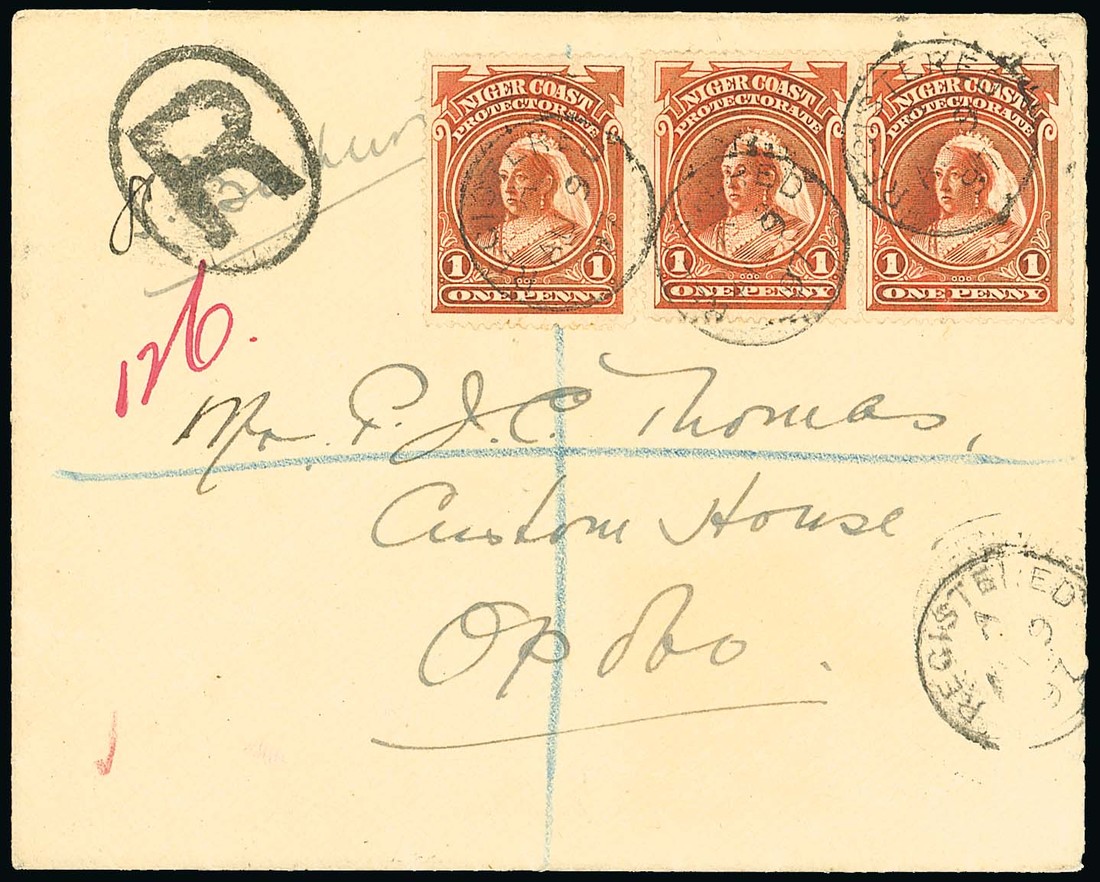 R
8
126.
NIGER COAST
PROTECTORATE
1 1
ONE PENNY
NIGER COAST
PROTECTORATE
1 1
ONE PENNY
NIGER COAST
PROTECTORATE
1 1
ONE PENNY
REGISTERED
Mr. P. J. C. Thomas,
Custom House
Opobo.
REGISTERED